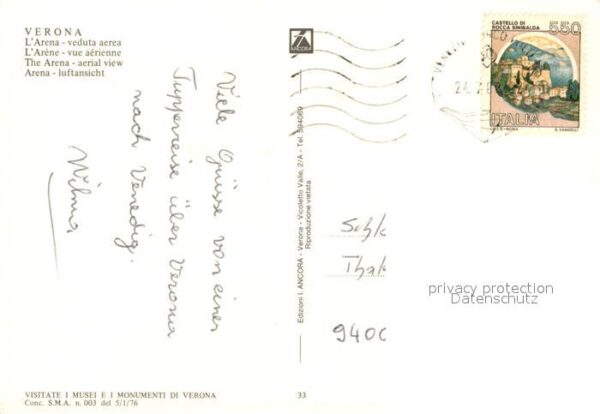 VERONA
L'Arena - veduta aerea
L'Arène - vue aérienne
The Arena - aerial view
Arena - luftansicht
Viele Grüsse von einer
Tupperreise über Verona
nach Venedig.
Wilma
ANCORA
Edizioni I. ANCORA - Verona - Vicoletto Valle, 2/A - Tel. 594069
Riproduzione vietata
CASTELLO DI
ROCCA SINIBALDA
550
ITALIA
privacy protection
Datenschutz
9400
VISITATE I MUSEI E I MONUMENTI DI VERONA
Conc. S.M.A. n. 003 del 5/1/76
33